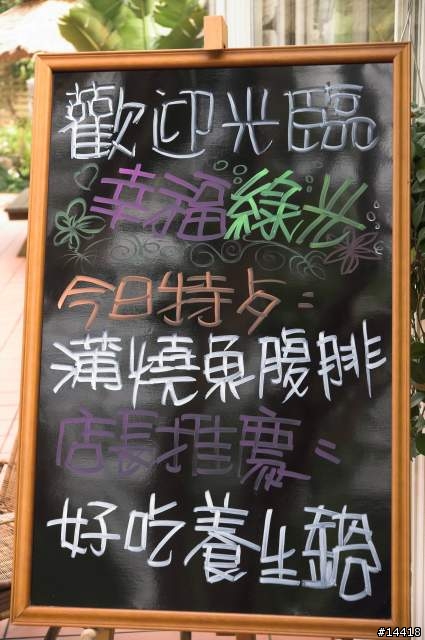 歡迎光臨
幸福綠光
今日特歺:
蒲燒魚腹排
店長推薦:
好吃養生鍋
#14418